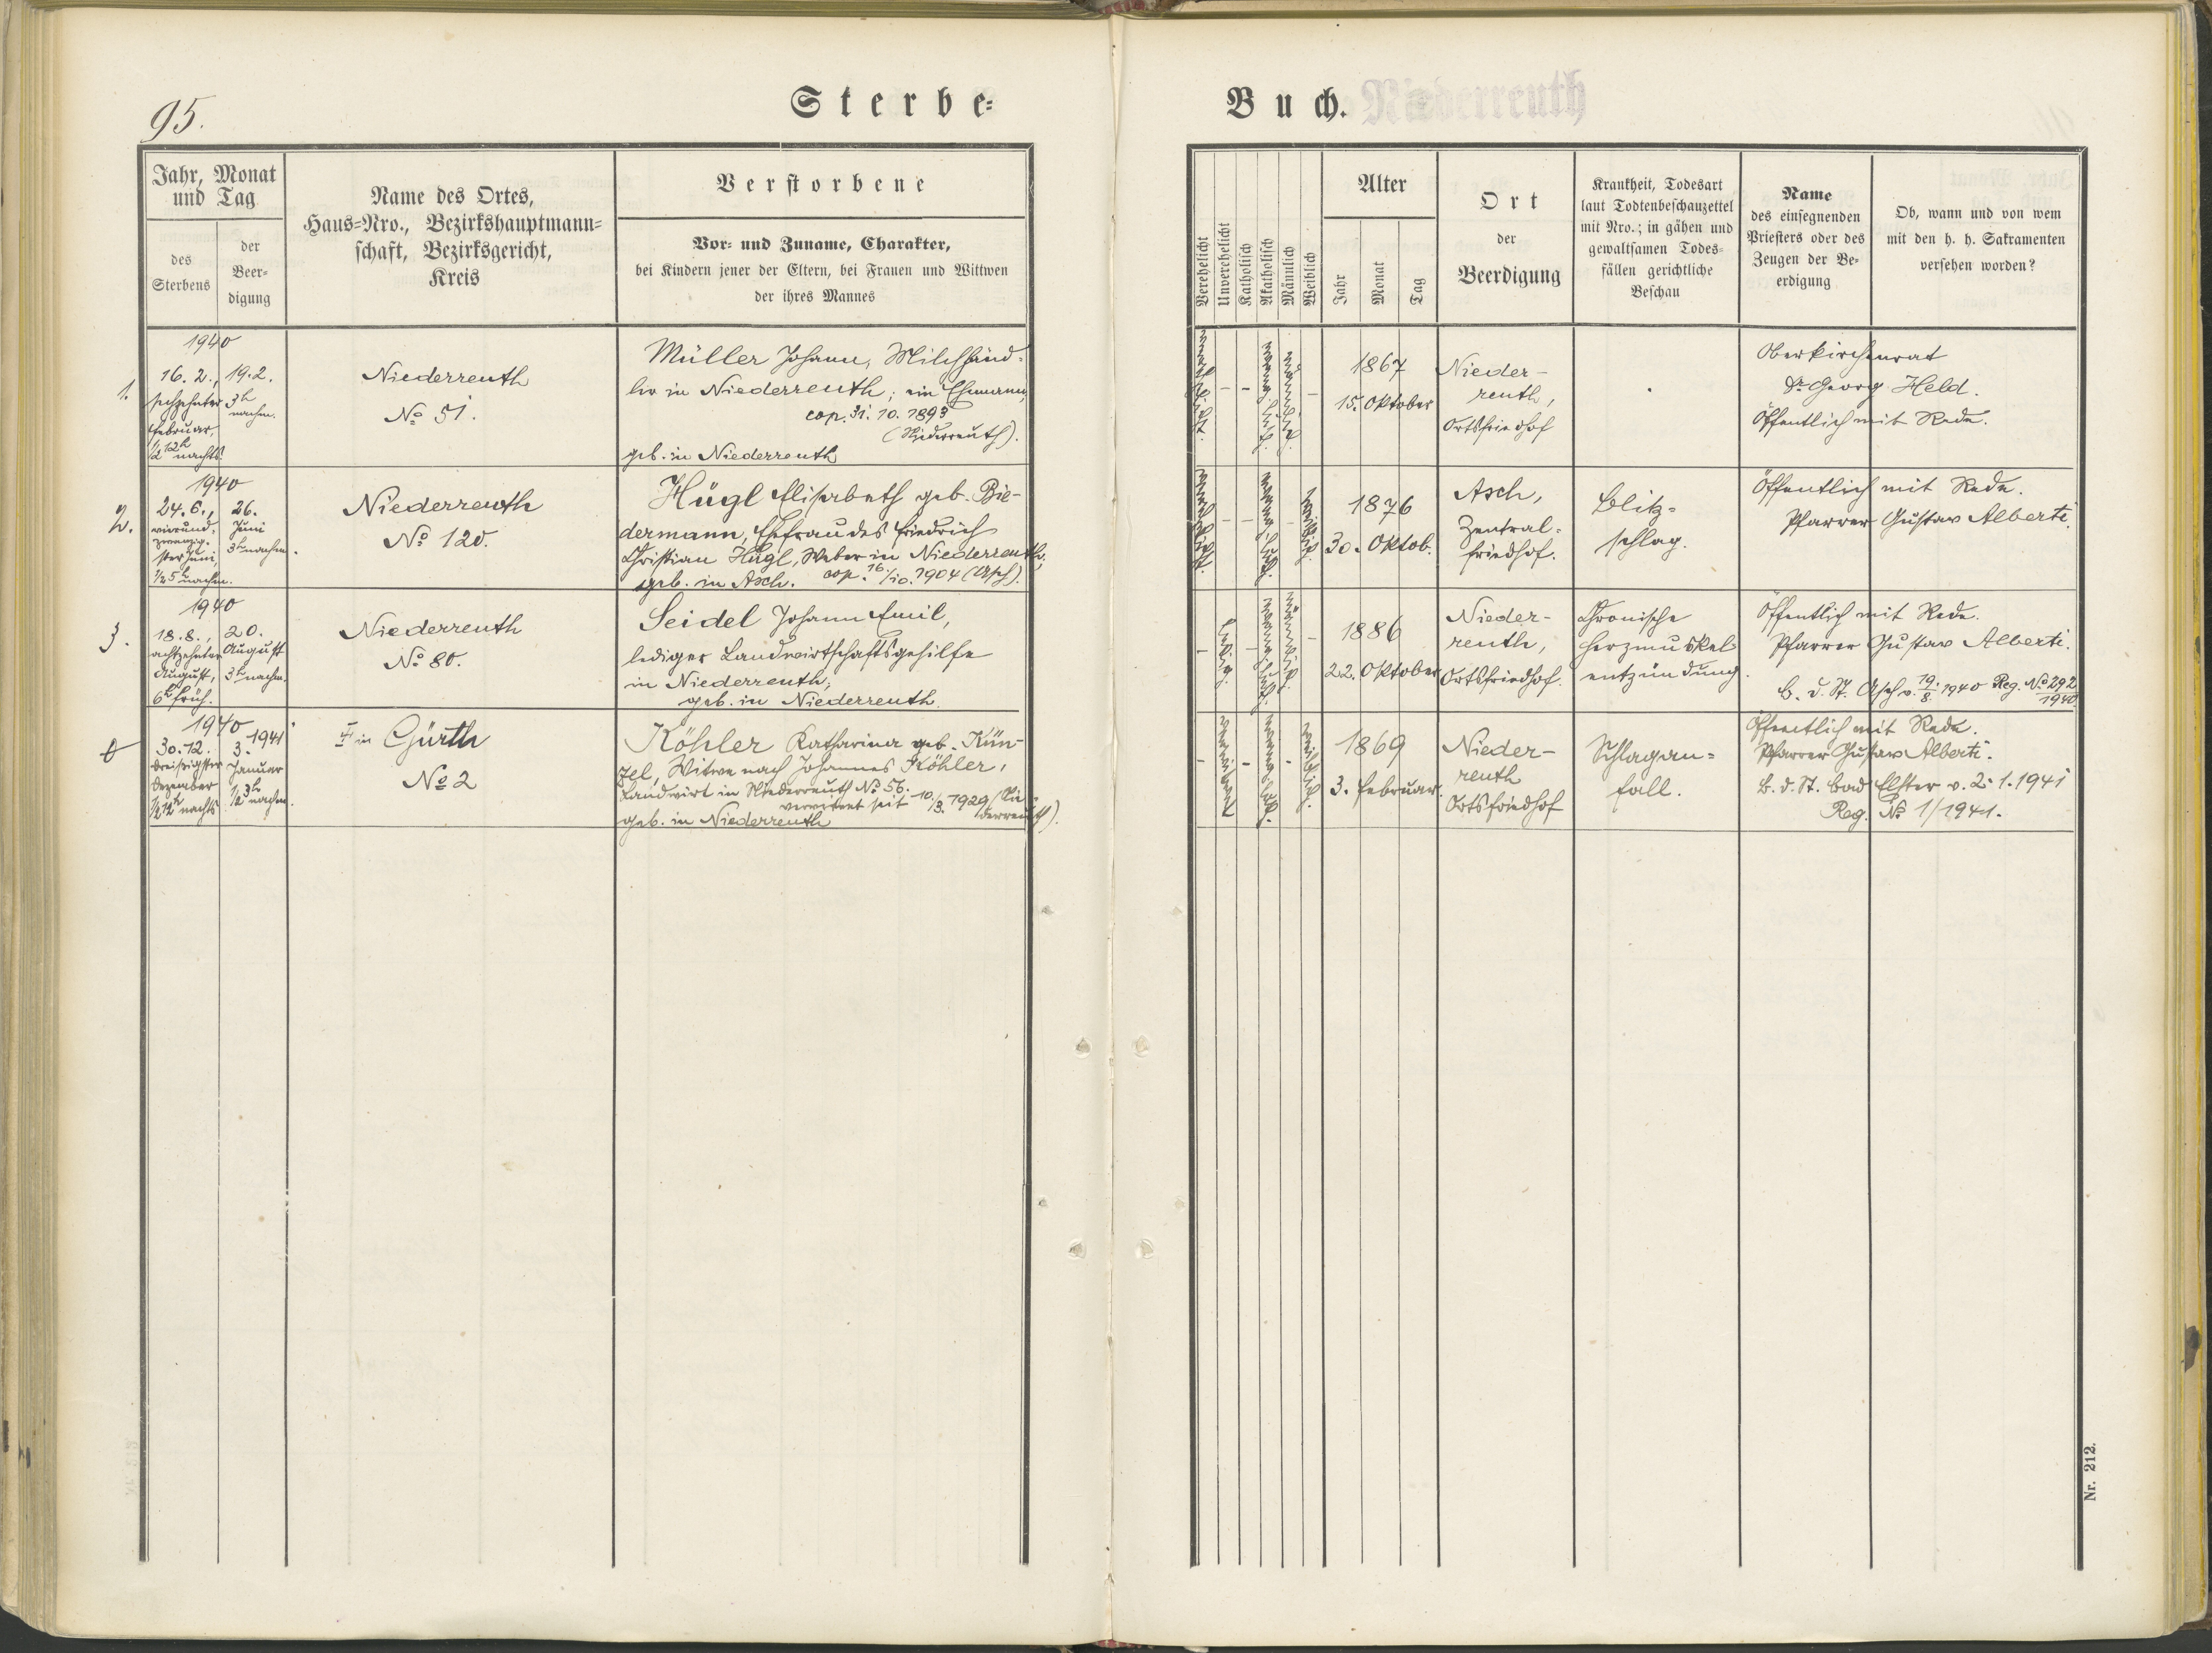 95.
Sterbe=
Buch.
Niederreuth
Jahr, Monat
und Tag
des
Sterbens
der
Beer=
digung
Name des Ortes,
Haus=Nro., Bezirkshauptmann=
schaft, Bezirksgericht,
Kreis
Verstorbene
Vor= und Zuname, Charakter,
bei Kindern jener der Eltern, bei Frauen und Wittwen
der ihres Mannes
Verehelicht
Unverehelicht
Katholisch
Akatholisch
Männlich
Weiblich
Alter
Jahr
Monat
Tag
Ort
der
Beerdigung
Krankheit, Todesart
laut Todtenbeschauzettel
mit Nro.; in gähen und
gewaltsamen Todes=
fällen gerichtliche
Beschau
Name
des einsegnenden
Priesters oder des
Zeugen der Be=
erdigung
Ob, wann und von wem
mit den h. h. Sakramenten
versehen worden?
1.
1940
16. 2.,
sechzehnter
Februar,
1/2 12h nachts.
19. 2.
3h
nachm.
Niederreuth
No 51.
Müller Johann, Milchhänd=
ler in Niederreuth; ein Ehemann,
cop. 31. 10. 1893
(Niederreuth).
geb. in Niederreuth
verehelicht.
–
–
akatholisch.
männlich.
–
1867
15. Oktober
Nieder-
reuth,
Ortsfriedhof
Oberkirchenrat
Dr Georg Held.
Öffentlich mit Rede.
2.
1940
24. 6.,
vierund-
zwanzig-
ster Juni,
1/2 5h nachm.
26.
Juni
3h nachm.
Niederreuth
No 120.
Hügl Elisabeth geb. Bie-
dermann, Ehefrau des Friedrich
Christian Hügl, Weber in Niederreuth;
geb. in Asch. cop. 16/10. 1904 (Asch).
verehelicht.
–
–
akatholisch.
–
weiblich.
1876
30. Oktob.
Asch,
Zentral=
friedhof.
Blitz=
schlag.
Öffentlich mit Rede.
Pfarrer Gustav Alberti.
3.
1940
18. 8.,
achtzehnter
August,
6h früh.
20.
August
3h nachm.
Niederreuth
No 80.
Seidel Johann Emil,
lediger Landwirtschaftsgehilfe
in Niederreuth;
geb. in Niederreuth.
–
ledig.
–
akatholisch.
männlich.
–
1886
22. Oktober
Nieder-
reuth,
Ortsfriedhof.
Chronische
Herzmuskel
entzündung.
Öffentlich mit Rede.
Pfarrer Gustav Alberti.
B. d. St. Asch v. 19./8. 1940 Reg. No 292/1940.
1940
30. 12.
dreißigster
Dezember
1/2 12h nachts
3. 1941
Januar
1/2 3h nachm.
in Gürth
No 2
Köhler Katharina geb. Kün-
zel, Witwe nach Johannes Köhler,
Landwirt in Niederreuth No 56.
verwitwet seit 10/3. 1929 (Nie-
derreuth).
geb. in Niederreuth
–
verwitwet
–
akatholisch.
–
weiblich.
1869
3. Februar.
Nieder-
reuth
Ortsfriedhof
Schlagan=
fall.
Öffentlich mit Rede.
Pfarrer Gustav Alberti.
B. d. St. Bad Elster v. 2. 1. 1941
Reg. No 1/1941.
Nr. 212.